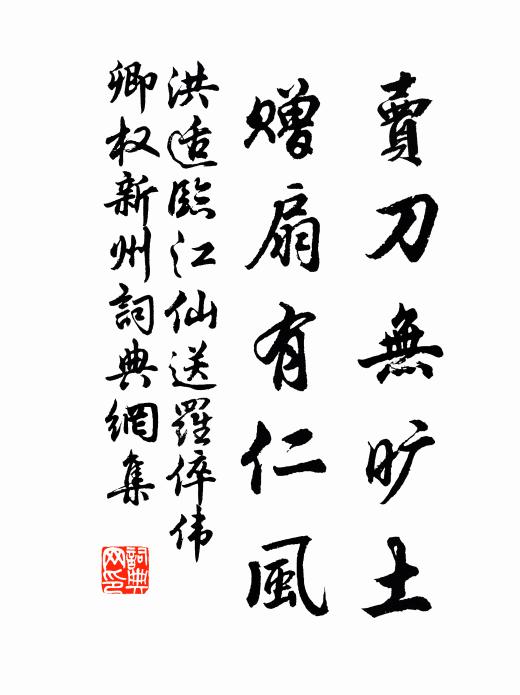 賣刀無旷土
赠扇有仁風
洪适臨江仙送羅倅伟
卿权新州詞典網集
詞典网印